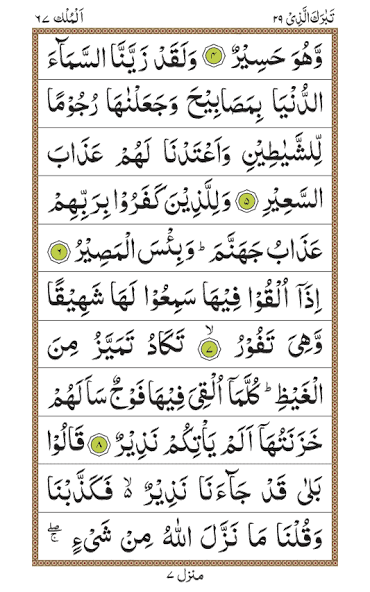 تَبٰرَكَ الَّذِیْ ٢٩
اَلْمُلْك ٦٧
وَّهُوَ حَسِیْرٌ ۴ وَلَقَدْ زَیَّنَّا السَّمَآءَ
الدُّنْیَا بِمَصَابِیْحَ وَجَعَلْنٰهَا رُجُوْمًا
لِّلشَّیٰطِیْنِ وَاَعْتَدْنَا لَهُمْ عَذَابَ
السَّعِیْرِ ۵ وَلِلَّذِیْنَ كَفَرُوْا بِرَبِّهِمْ
عَذَابُ جَهَنَّمَ ؕ وَبِئْسَ الْمَصِیْرُ ۶
اِذَاۤ اُلْقُوْا فِیْهَا سَمِعُوْا لَهَا شَهِیْقًا
وَّهِیَ تَفُوْرُ ۙ ۷ تَكَادُ تَمَیَّزُ مِنَ
الْغَیْظِ ؕ كُلَّمَاۤ اُلْقِیَ فِیْهَا فَوْجٌ سَاَلَهُمْ
خَزَنَتُهَاۤ اَلَمْ یَاْتِكُمْ نَذِیْرٌ ۸ قَالُوْا
بَلٰی قَدْ جَآءَنَا نَذِیْرٌ ۙ۬ فَكَذَّبْنَا
وَقُلْنَا مَا نَزَّلَ اللّٰهُ مِنْ شَیْءٍ ۚۖ
منزل ۷